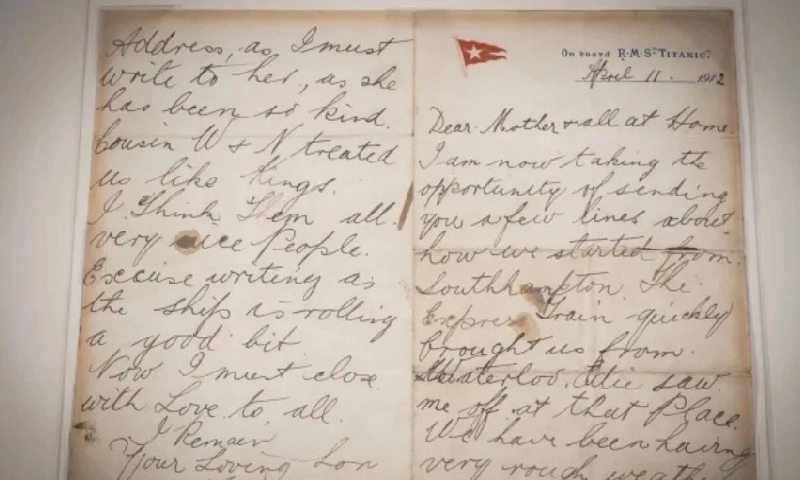 On board R.M.S. "TITANIC".
April 11. 1912
Dear Mother & all at Home.
I am now taking the
opportunity of sending
you a few lines about
how we started from.
Southhampton The
Express Train quickly
brought us from.
Waterloo. saw
me off at that Place.
We have been haivng
very rough
Address, as, I must
write to her, as she
has been so kind.
Cousin W & N treated
us like Kings.
I Think Them all.
very nice People.
Excuse writing as
the ship is rolling
a good bit
Now I must close
with Love to all.
I Remain
Your Loving Son